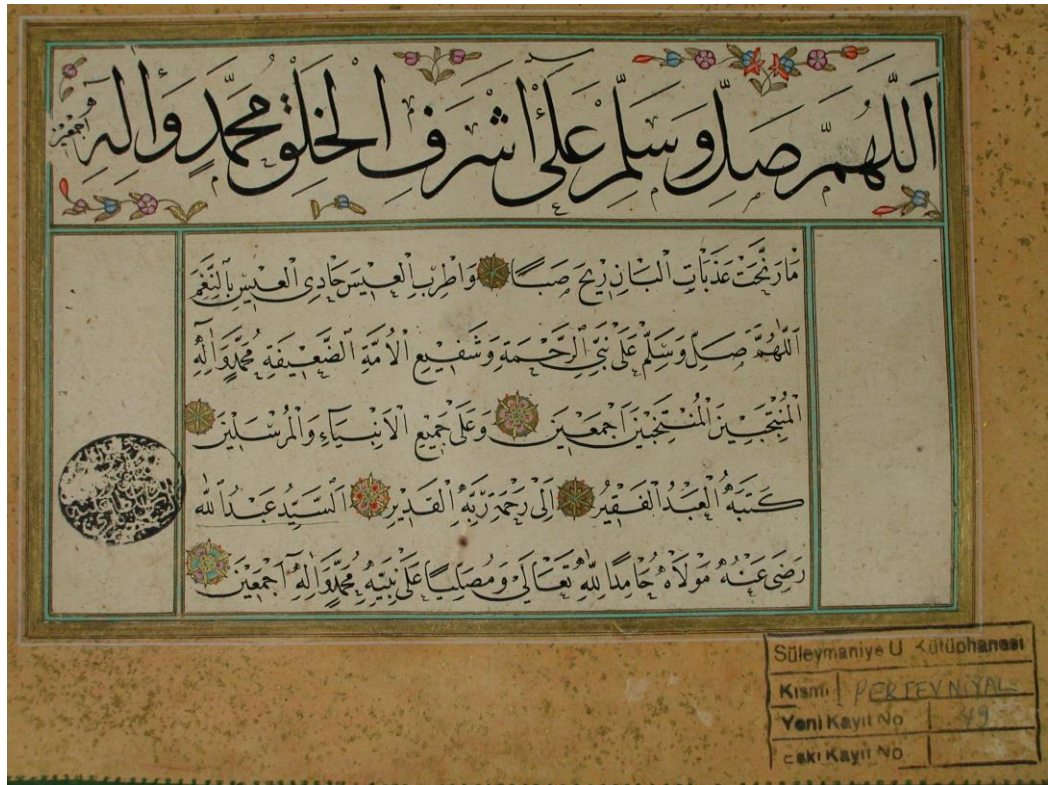 اَللّٰهُمَّ صَلِّ وَسَلِّمْ عَلٰى اَشْرَفِ الْخَلْقِ مُحَمَّدٍ وَاٰلِهِ اَجْمَعِينَ
مَا رَنَّحَتْ عَذَبَاتِ الْبَانِ رِيحُ صَبًا وَاَطْرَبَ الْعِيسَ حَادِى الْعِيسِ بِالنَّغَمِ
اَللّٰهُمَّ صَلِّ وَسَلِّمْ عَلٰى نَبِىِّ الرَّحْمَةِ وَشَفِيعِ الْاُمَّةِ الضَّعِيفَةِ مُحَمَّدٍ وَاٰلِهِ
الْمُنْتَجَبِينَ اَجْمَعِينَ وَعَلٰى جَمِيعِ الْاَنْبِيَاءِ وَالْمُرْسَلِينَ
كَتَبَهُ الْعَبْدُ الْفَقِيرُ اِلٰى رَحْمَةِ رَبِّهِ الْقَدِيرِ اَلسَّيِّدُ عَبْدُ اللّٰه
رَضِىَ عَنْهُ مَوْلَاهُ حَامِدًا لِلّٰهِ تَعَالٰى وَمُصَلِّيًا عَلٰى نَبِيِّهِ مُحَمَّدٍ وَاٰلِهِ اَجْمَعِينَ
Süleymaniye U Kütüphanesi
Kısmi PERTEVNİYAL
Yeni Kayıt No 49
Eski Kayıt No